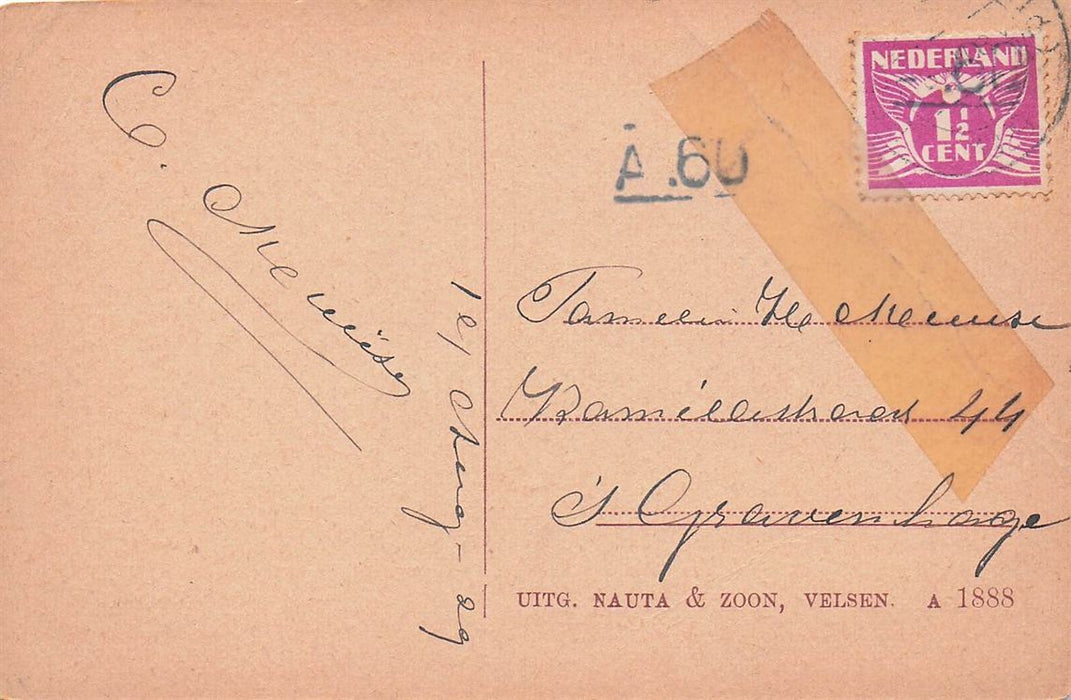 C. Meuïse
NEDERLAND
1½
CENT
A.60
Familie H Meeuse
Kamillestraat 44
's Gravenhage
UITG. NAUTA & ZOON, VELSEN. A 1888